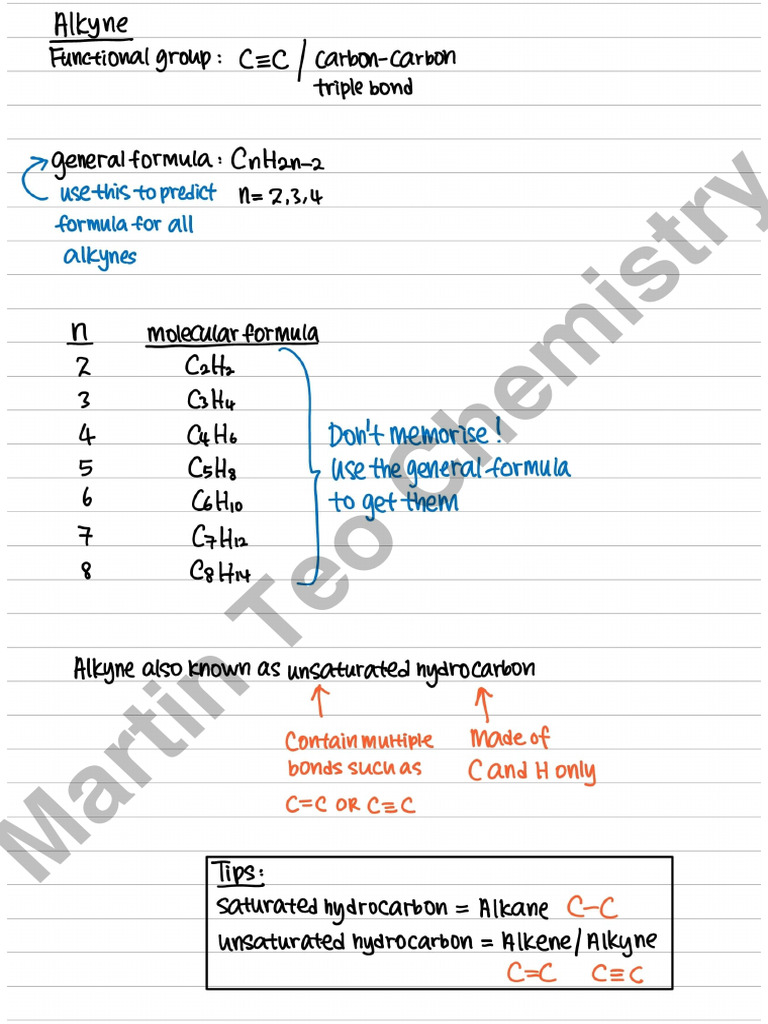 Alkyne
Functional group: C≡C / carbon-carbon
triple bond
general formula: CnH2n-2
use this to predict n= 2,3,4
formula for all
alkynes
n molecular formula
2 C2H2
3 C3H4
4 C4H6
5 C5H8
6 C6H10
7 C7H12
8 C8H14
Don't memorise!
use the general formula
to get them
Alkyne also known as unsaturated hydrocarbon
Contain multiple
bonds such as
C=C OR C≡C
Made of
C and H only
Tips:
saturated hydrocarbon = Alkane C-C
unsaturated hydrocarbon = Alkene/Alkyne
C=C C≡C
Martin Teo Chemistry